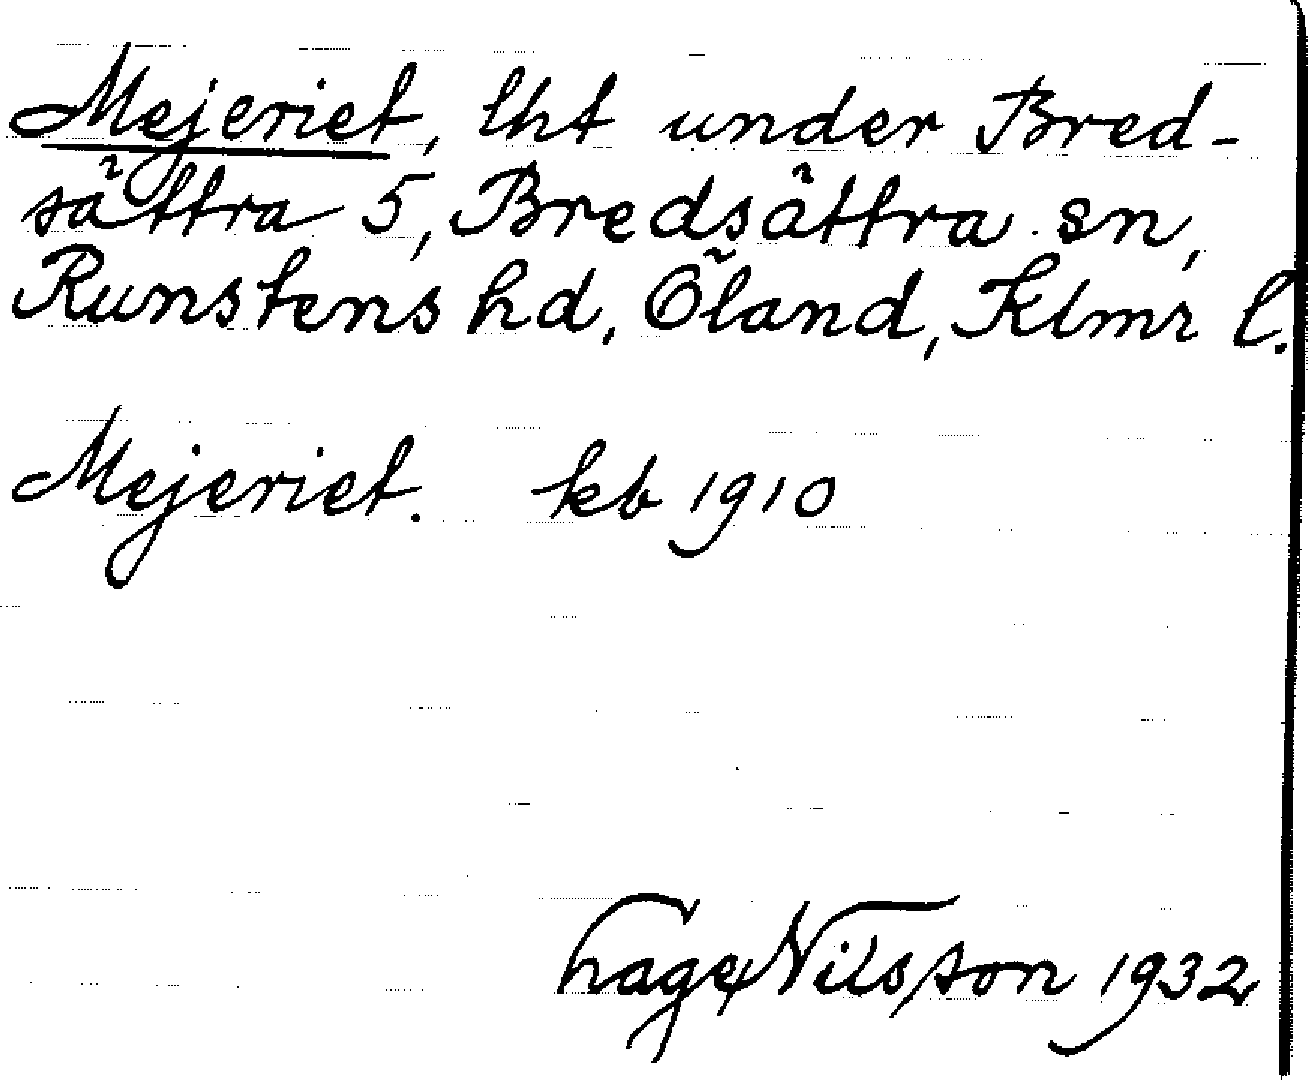 Mejeriet, lht under Bred-
sättra 5, Bredsättra sn,
Runstens hd, Öland, Klmr l.
Mejeriet. kb 1910
Nilsson 1932